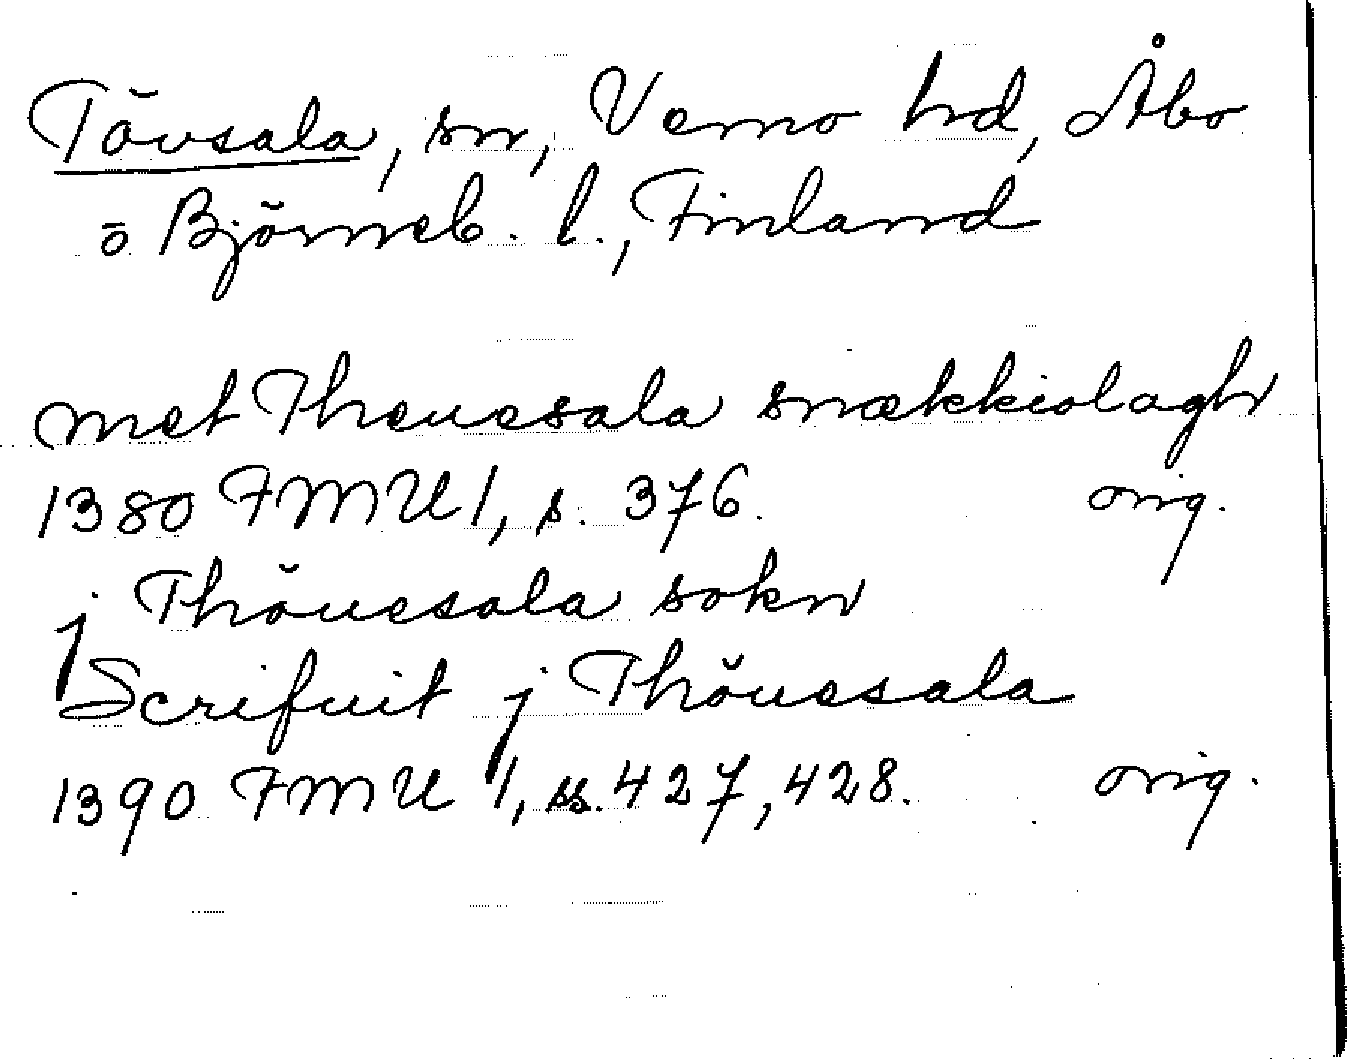 Tövsala, sn, Vemo hd, Åbo
o Björneb. l., Finland
met Theuesala snækkiolagh
1380 FMU 1, s. 376. orig.
j Thöuesala sokn
Scrifuit j Thöuesala
1390 FMU 1, ss. 427, 428. orig.